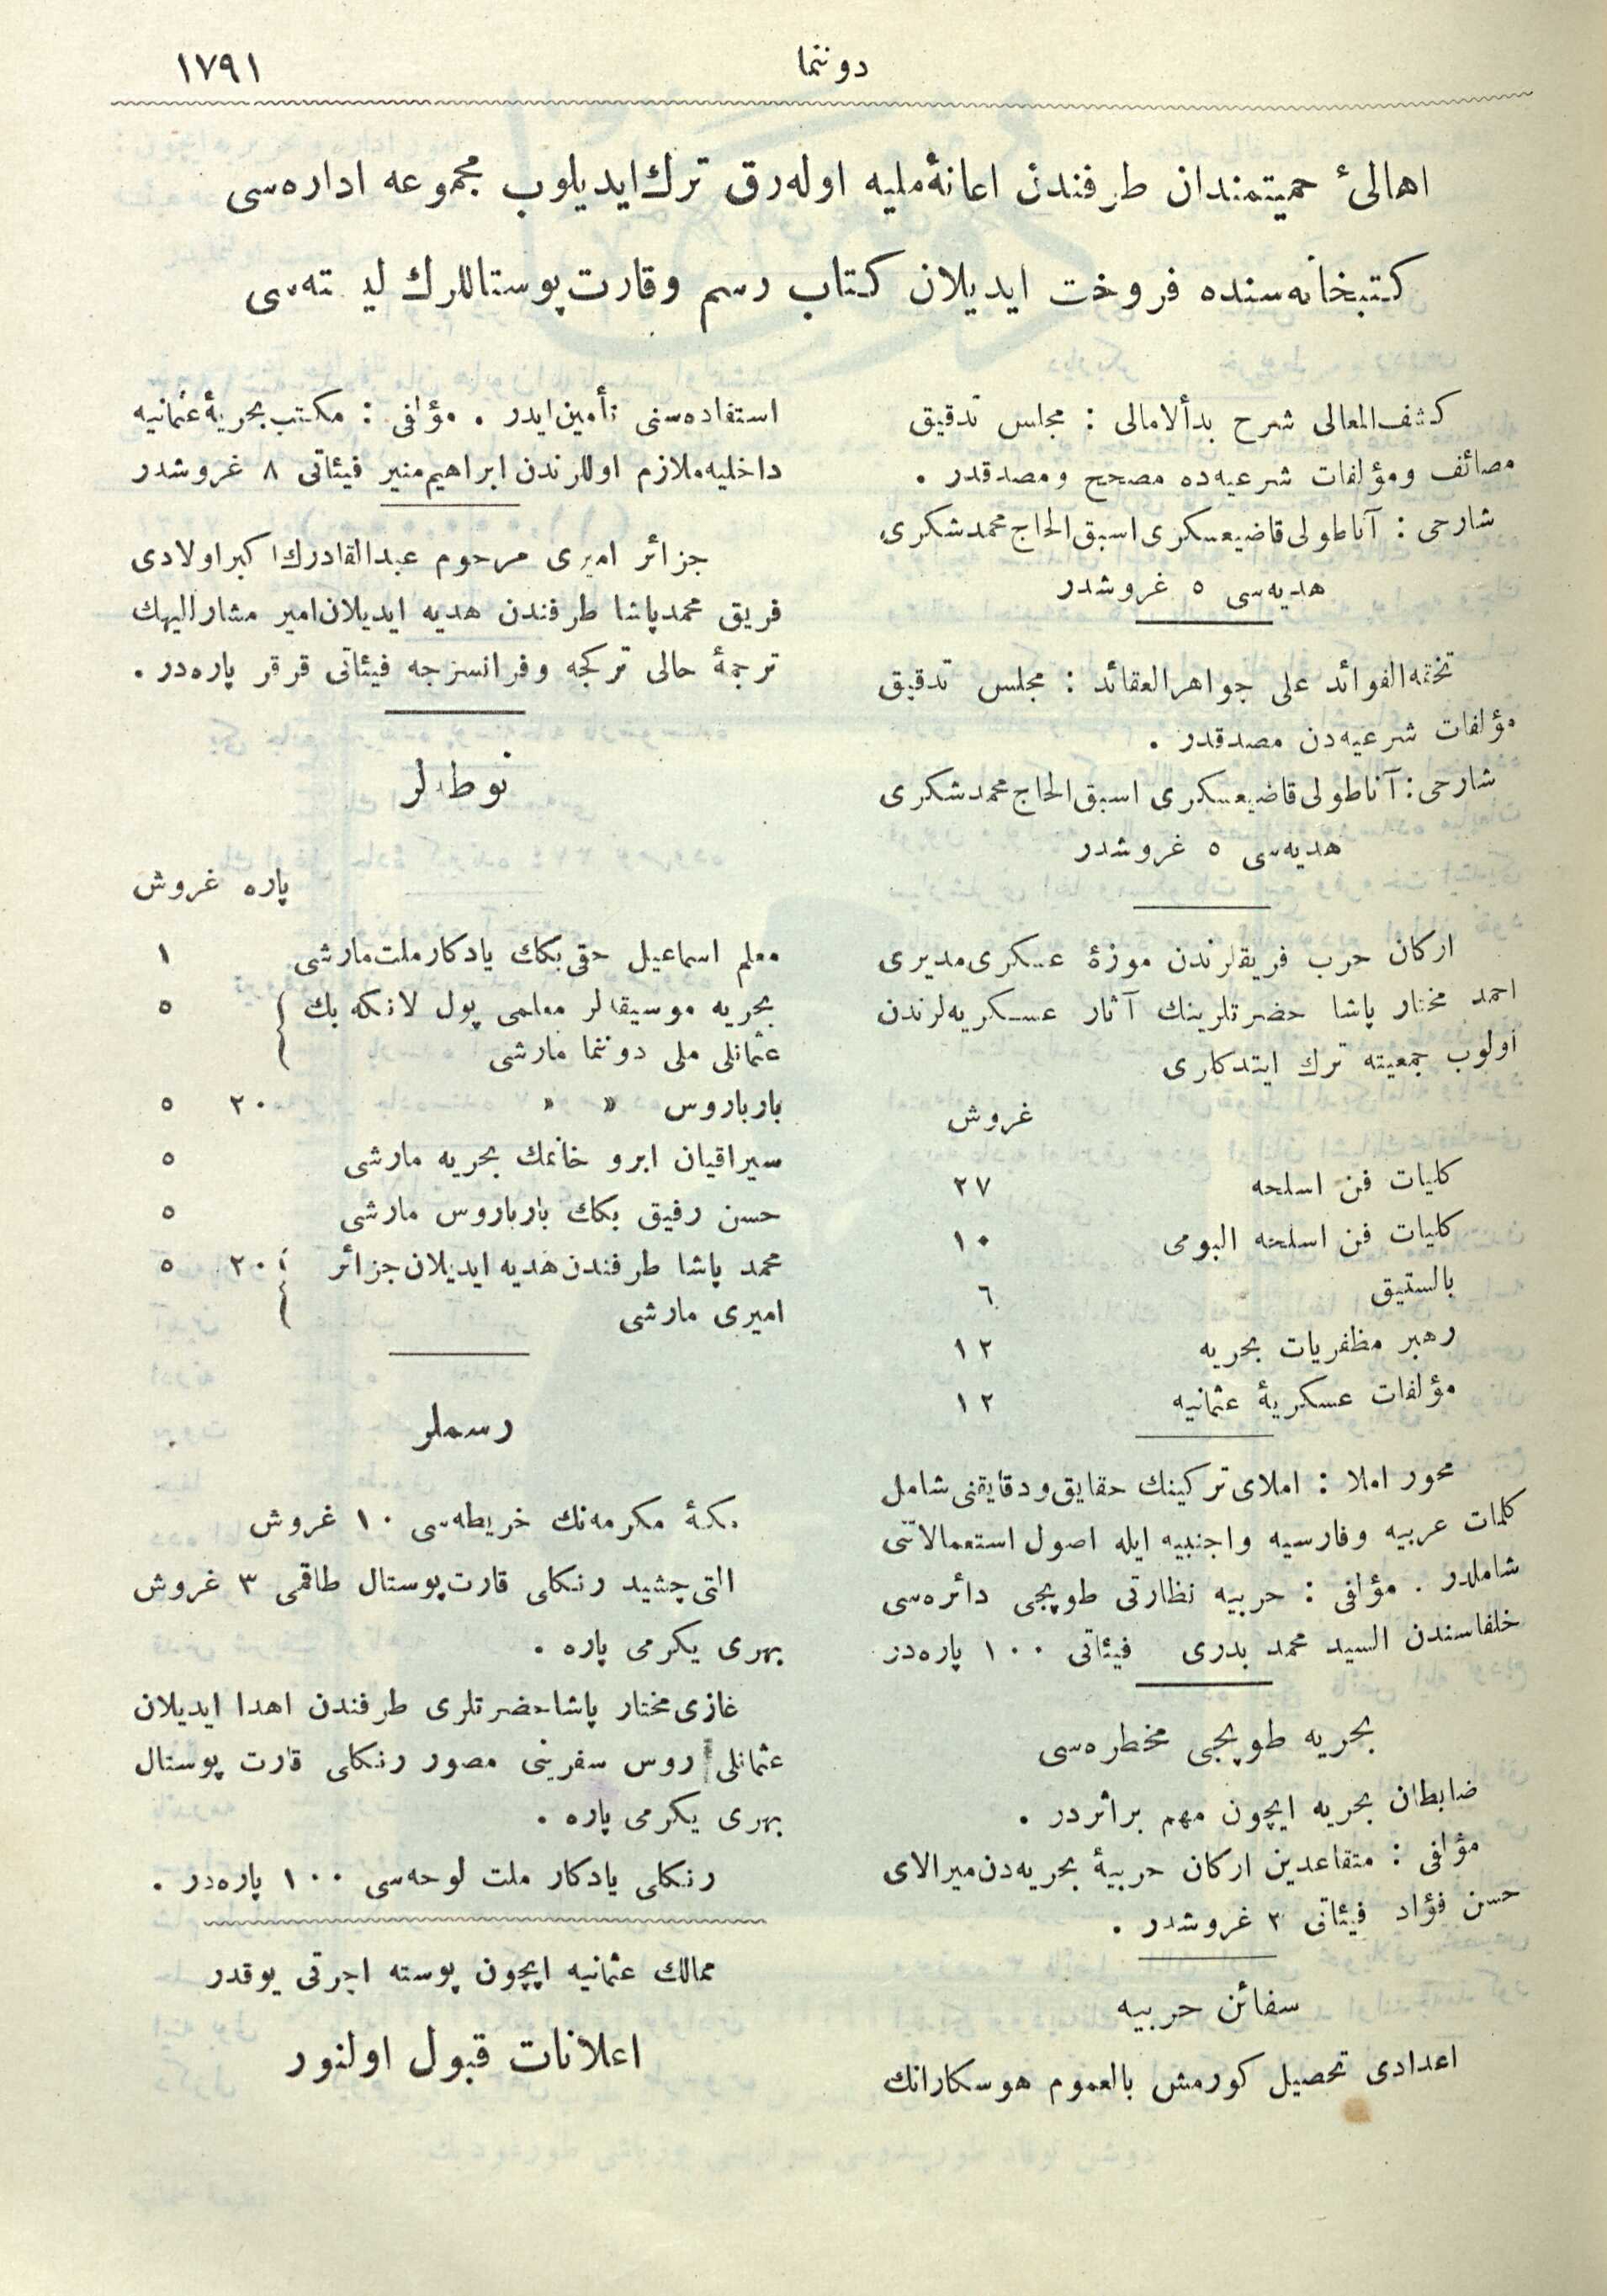 دوننما
١٧٩١
اهالئ حميتمندان طرفندن اعانۀ مليه اوله‌رق ترك ايديلوب مجموعه اداره‌سى
كتبخانه‌سنده فروخت ايديلان كتاب رسم وقارت پوستاللرك ليسته‌سى
كشف المعالى شرح بدأ الامالى : مجلس تدقيق
مصائف ومؤلفات شرعيه‌ده مصحح ومصدقدر .
شارحى : آناطولى قاضيعسكرى اسبق الحاج محمد شكرى
هديه‌سى ٥ غروشدر
تحفه الفوائد على جواهر العقائد : مجلس تدقيق
مؤلفات شرعيه‌دن مصدقدر .
شارحى : آناطولى قاضيعسكرى اسبق الحاج محمد شكرى
هديه‌سى ٥ غروشدر
اركان حرب فريقلرندن موزۀ عسكرى مديرى
احمد مختار پاشا حضرتلرينك آثار عسكريه‌لرندن
اولوب جمعيته ترك ايتدكارى
غروش
كليات فن اسلحه ٢٧
كليات فن اسلحه البومى ١٠
بالستيق ٦
رهبر مظفريات بحريه ١٢
مؤلفات عسكريۀ عثمانيه ١٢
محور املا : املاى تركينك حقايق ودقايقنى شامل
كلمات عربيه وفارسيه واجنبيه ايله اصول استعمالاتنى
شاملدر . مؤلفى : حربيه نظارتى طوپجى دائره‌سى
خلفاسندن السيد محمد بدرى فيئاتى ١٠٠ پاره‌در
بحريه طوپجى مخطره‌سى
ضابطان بحريه ايچون مهم براثردر .
مؤلفى : متقاعدين اركان حربيۀ بحريه‌دن ميرالاى
حسن فؤاد فيئاتى ٣ غروشدر .
سفائن حربيه
اعدادى تحصيل كورمش بالعموم هوسكارانك
استفاده‌سنى تأمين ايدر . مؤلفى : مكتب بحريۀ عثمانيه
داخليه ملازم اوللرندن ابراهيم منير فيئاتى ٨ غروشدر
جزائر اميرى مرحوم عبدالقادرك اكبر اولادى
فريق محمد پاشا طرفندن هديه ايديلان امير مشار اليهك
ترجمۀ حالى تركجه وفرانسزجه فيئاتى قرقر پاره‌در .
نوطه‌لر
پاره غروش
معلم اسماعيل حقى بكك يادكار ملت مارشى ١
بحريه موسيقه‌لر معلمى پول لانكه بك ٥
عثمانلى ملى دوننما مارشى
بارباروس » » ٢٠ ٥
سيراقيان ابرو خانمك بحريه مارشى ٥
حسن رفيق بكك بارباروس مارشى ٥
محمد پاشا طرفندن هديه ايديلان جزائر ٢٠ ٥
اميرى مارشى
رسملر
مكۀ مكرمه‌نك خريطه‌سى ١٠ غروش
التى چشيد رنكلى قارت پوستال طاقمى ٣ غروش
بهرى يكرمى پاره .
غازى مختار پاشا حضرتلرى طرفندن اهدا ايديلان
عثمانلى روس سفرينى مصور رنكلى قارت پوستال
بهرى يكرمى پاره .
رنكلى يادكار ملت لوحه‌سى ١٠٠ پاره‌در .
ممالك عثمانيه ايچون پوسته اجرتى يوقدر
اعلانات قبول اولنور